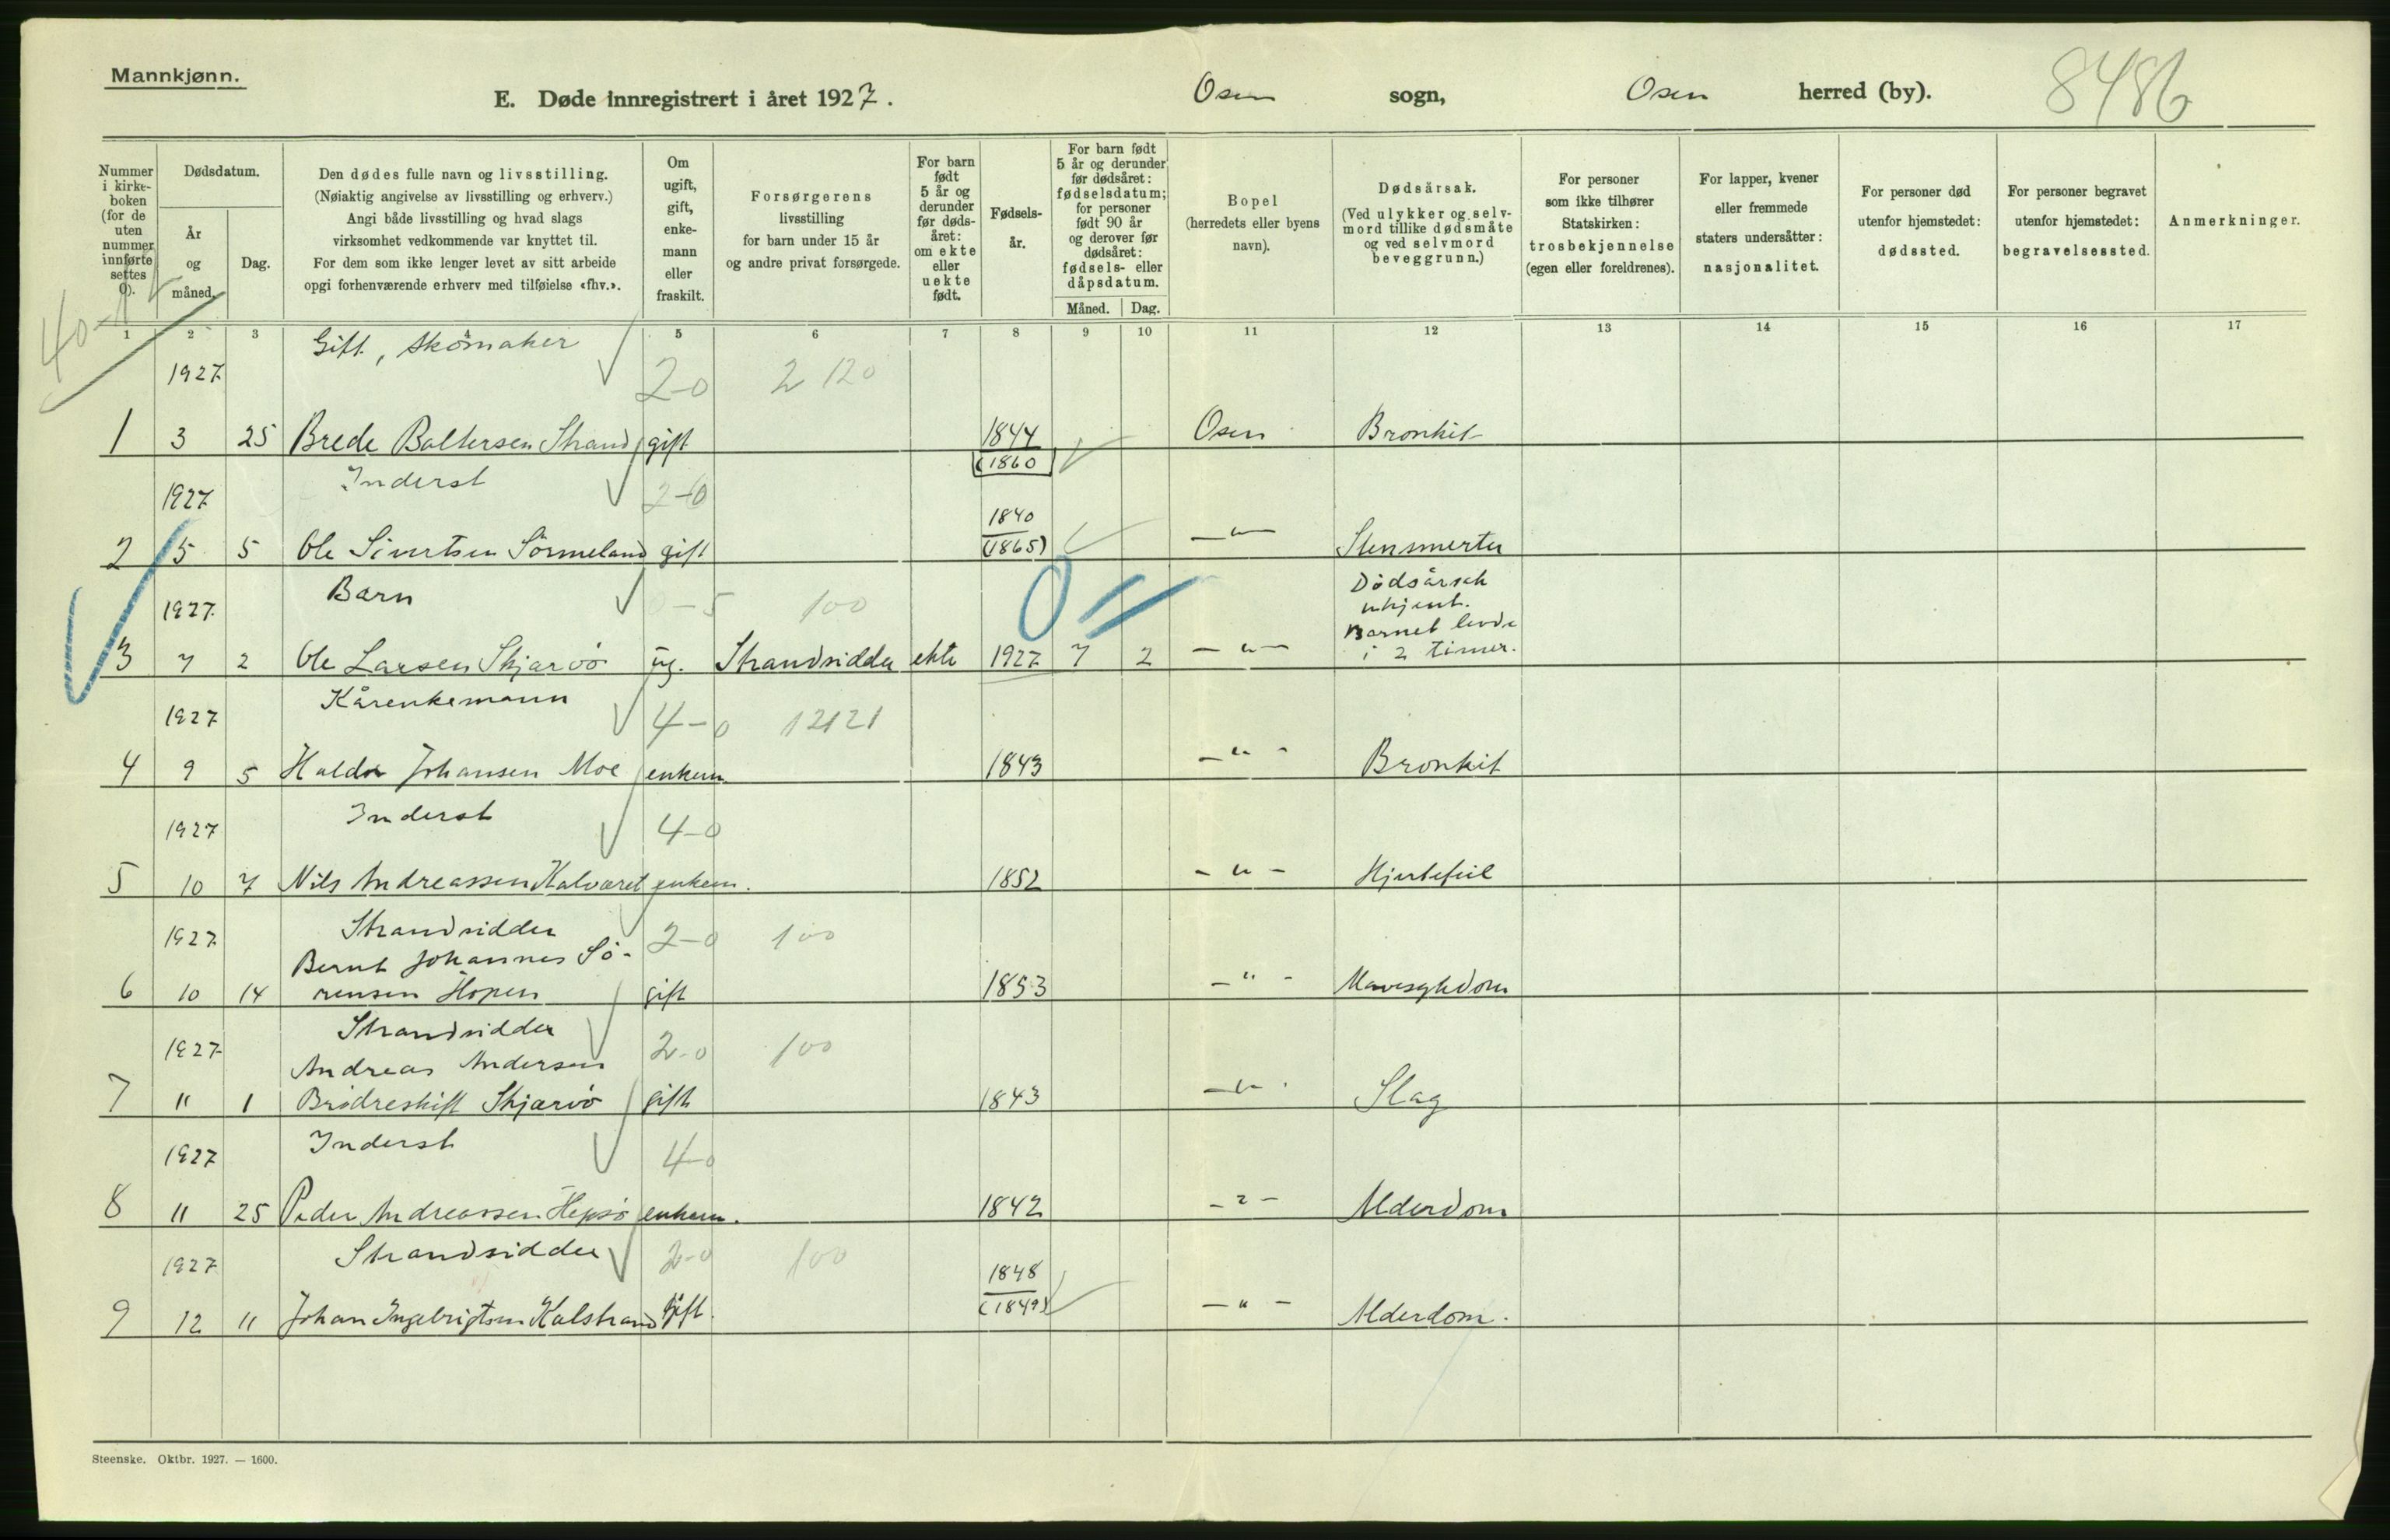 Mannkjønn.
E. Døde innregistrert i året 1927. Osen sogn, Osen herred (by). 8486
Nummer i kirkeboken (for de uten nummer innførte settes 0).
Dødsdatum.
År og måned.
Dag.
Den dødes fulle navn og livsstilling.
(Nøiaktig angivelse av livsstilling og erhverv.)
Angi både livsstilling og hvad slags
virksomhet vedkommende var knyttet til.
For dem som ikke lenger levet av sitt arbeide
opgi forhenværende erhverv med tilføielse «fhv.».
Om ugift, gift, enkemann eller fraskilt.
Forsørgerens
livsstilling
for barn under 15 år
og andre privat forsørgede.
For barn født 5 år og derunder før dødsåret: om ekte eller uekte født.
Fødselsår.
For barn født 5 år og derunder før dødsåret: fødselsdatum; for personer født 90 år og derover før dødsåret: fødsels- eller dåpsdatum.
Måned. Dag.
Bopel
(herredets eller byens
navn).
Dødsårsak.
(Ved ulykker og selvmord tillike dødsmåte og ved selvmord beveggrunn.)
For personer
som ikke tilhører
Statskirken:
trosbekjennelse
(egen eller foreldrenes).
For lapper, kvener
eller fremmede
staters undersåtter:
nasjonalitet.
For personer død
utenfor hjemstedet:
dødssted.
For personer begravet
utenfor hjemstedet:
begravelsessted.
Anmerkninger.
40-1
1 2 3 4 5 6 7 8 9 10 11 12 13 14 15 16 17
Gift, skomaker
1927 2-0 2 120
1 3 25 Brede Baltersen Strand gift 1844 Osen Bronkit
(1860
Inderst
1927 2-0
1840
2 5 5 Ole Sivertsen Sørmeland gift (1865) -"- Stensmerter
Barn Dødsårsak
1927 0-5 100 ukjent.
0 Barnet levde
3 7 2 Ole Larsen Skjærvø ug. Strandsidder ekte 1927 7 2 -"- i 2 timer.
Kårenkemann
1927 4-0 12121
4 9 5 Haldor Johansen Moe enkem. 1843 -"- Bronkit
Inderst
1927 4-0
5 10 7 Nils Andreassen Kalværet enkem. 1852 -"- Hjertefeil
Strandsidder
1927 2-0 100
Bernt Johannes Sø-
6 10 14 rensen Hopen gift 1853 -"- Mavesykdom
Strandsidder
1927 2-0 100
Andreas Andersen
7 11 1 Brødreskift Skjærvø gift 1843 -"- Slag
Inderst
1927 4-0
8 11 25 Peder Andreassen Hepsø enkem. 1842 -"- Alderdom
Strandsidder
1927 2-0 100
1848
9 12 11 Johan Ingebrigtsen Kalstrand Gift. (1849) -"- Alderdom.
Steenske. Oktbr. 1927. — 1600.